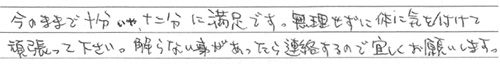 今のままで十分いや、十二分に満足です。無理せずに体に気を付けて
頑張って下さい。解らない事があったら連絡するので宜しくお願いします。